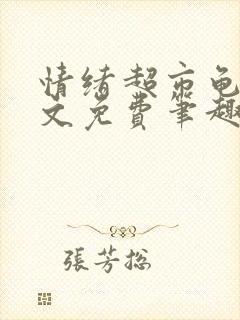 情绪超市龟
文免费笔趣
張芳総